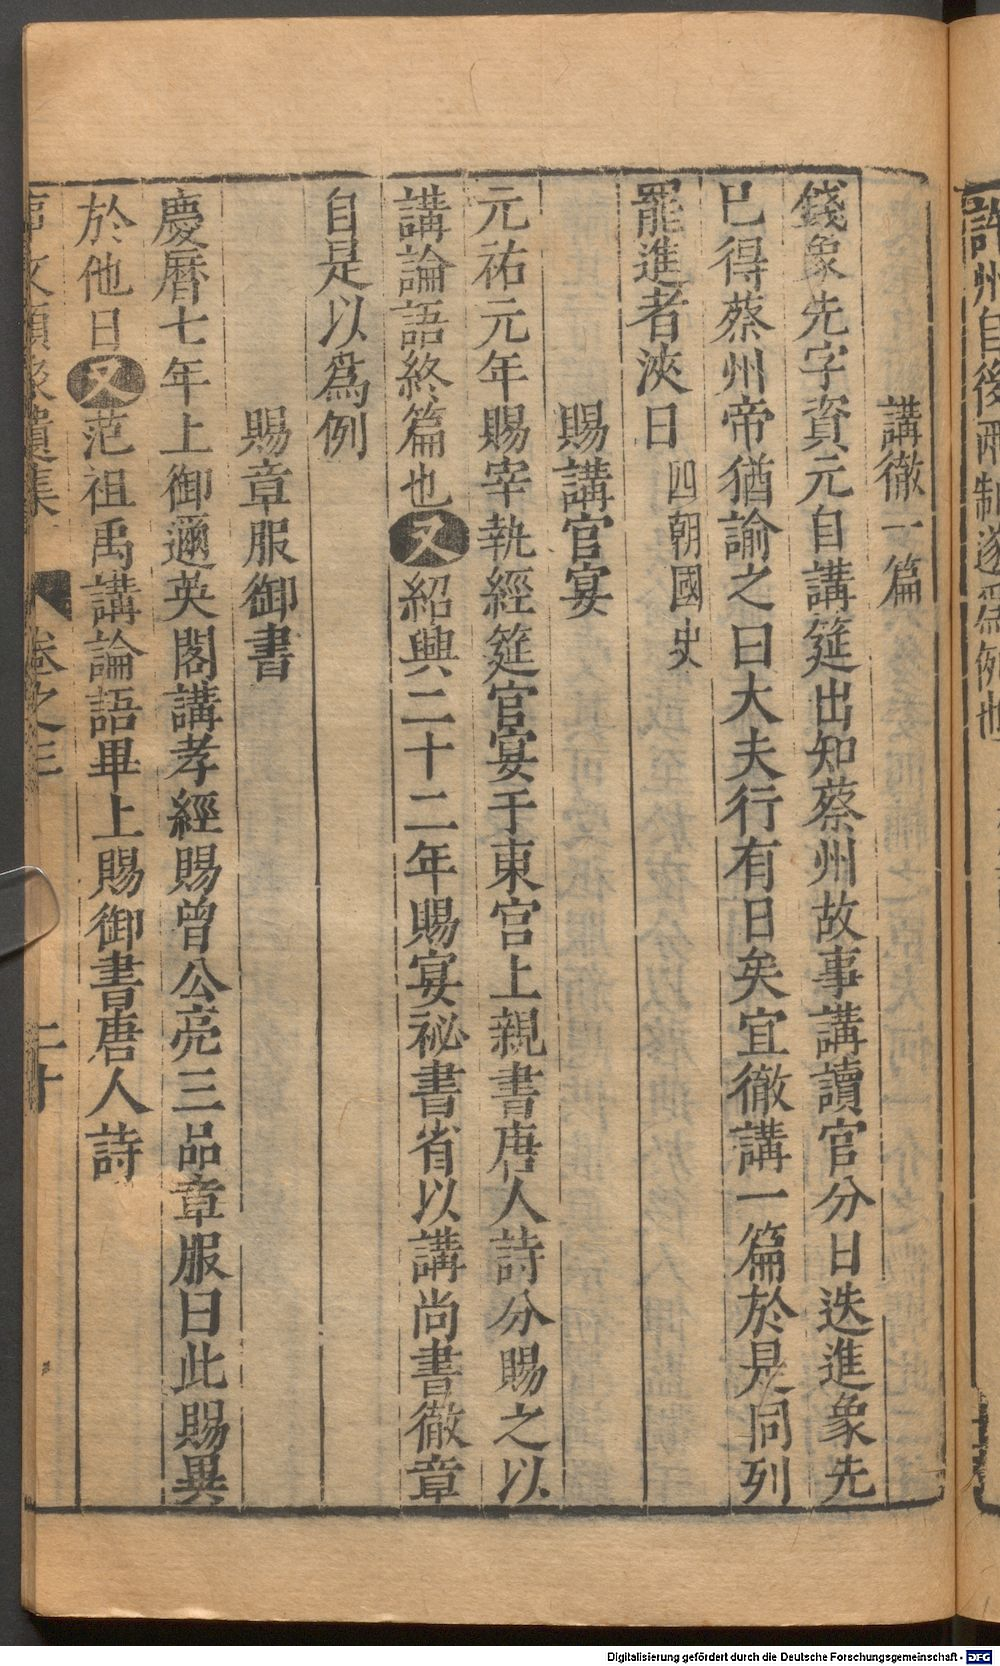 許州自後兩制遂爲例也
講徹一篇
錢象先字資元自講筵出知蔡州故事講讀官分日迭進象先
巳得蔡州帝猶諭之曰大夫行有日矣宜徹講一篇於是同列
罷進者浹日四朝國史
賜講官宴
元祐元年賜宰執經筵官宴于東宮上親書唐人詩分賜之以
講論語終篇也又紹興二十二年賜宴祕書省以講尚書徹章
自是以爲例
賜章服御書
慶曆七年上御邇英閣講孝經賜曾公亮三品章服曰此賜異
於他日又范祖禹講論語畢上賜御書唐人詩
事文類聚遺集 卷之三 二十
Digitalisierung gefördert durch die Deutsche Forschungsgemeinschaft - DFG